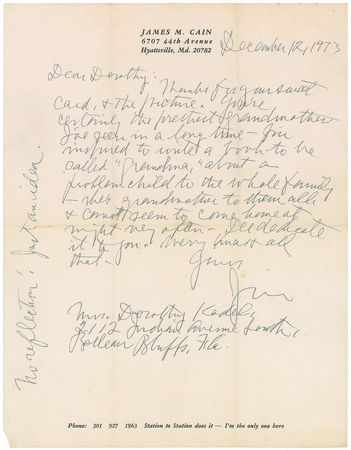 JAMES M. CAIN
6707 44th Avenue
Hyattsville, Md. 20782
December 12, 1973
Dear Dorothy: Thanks for your sweet
card, & the picture. You're
certainly the prettiest grandmother
I've seen in a long time - I'm
inspired to write a book to be
called "Grandma," about a
problem child to the whole family
- she's grandmother to them all &
& can't seem to come home at
night very often - I'll dedicate
it to you. Very best all
that -
Yours,
Jim
Mrs. Dorothy
2112 Indian Avenue South,
Belleair Bluffs, Fla.
No reflection! Just an idea.
Phone: 301 927 1963 Station to Station does it — I'm the only one here